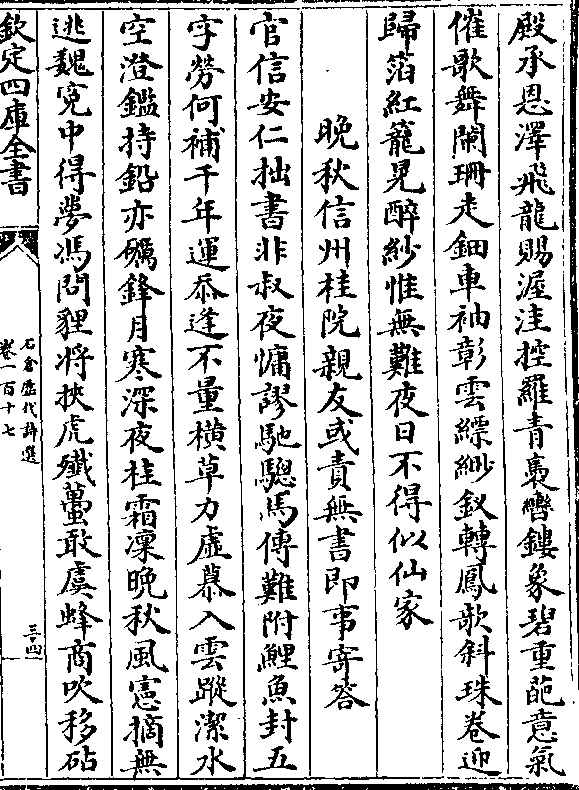 殿承恩澤飛龍賜渥洼控羅青裊轡鏤象碧重葩意氣
催歌舞闌珊走鈿車袖彰雲縹緲釵轉鳳欹斜珠卷迎
歸箔紅籠晃醉紗惟無難夜日不得似仙家
晚秋信州桂院親友或責無書即事寄答
官信安仁拙書非叔夜慵謬馳驄馬傳難附鯉魚封五
字勞何補千年運忝逢不量橫草力虛慕入雲蹤潔水
空澄鑑持鉛亦礪鋒月寒深夜桂霜凜晚秋風憲摘無
逃魏冤申得夢馮問貍將挾虎殲蠆敢虞蜂商吹移砧
欽定四庫全書
石倉歷代詩選
卷一百十七
三十四